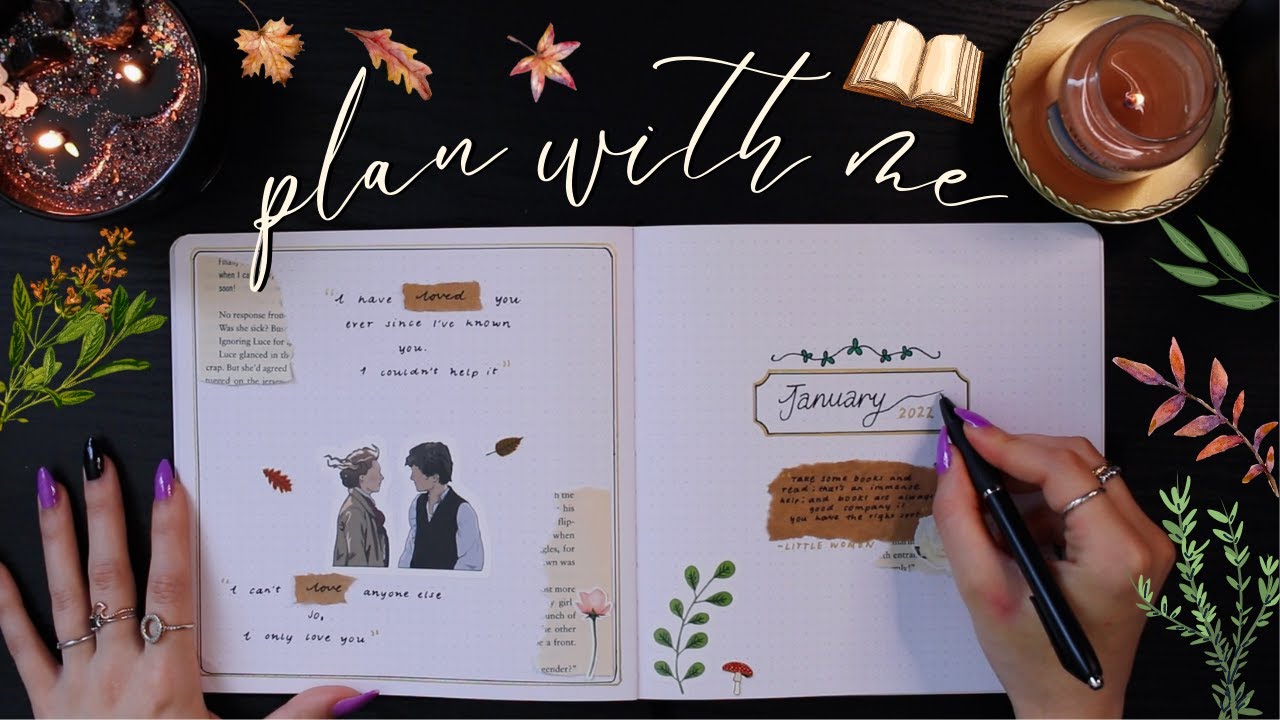 plan with me
Finally
when I ca
soon!
No response from
Was she sick? Bus
Ignoring Luce for
Luce glanced in th
crap. But she'd agreed
"I have loved you
ever since I've known
you.
I couldn't help it"
"I can't love anyone else
Jo,
I only love you"
h the
his
flip-
when
gles, for
wn was
ost more
girl
unch of
he other
be a front.
gender?"
January
2022
Take some books and
read; that's an immense
help; and books are always
good company if
you have the right sort.
-LITTLE WOMEN
th entran
only!"